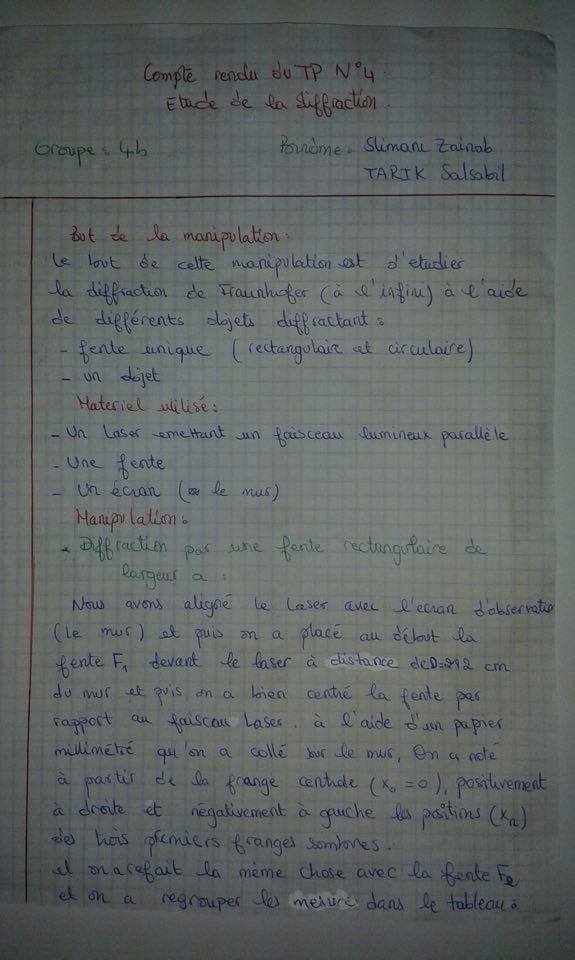 Compte rendu du TP N°4
Etude de la diffraction.
Groupe : 4b
Binôme : Slimane Zainab
TARIK Salsabil
But de la manipulation :
Le but de cette manipulation est d'etudier
la diffraction de Fraunhofer (à l'infini) à l'aide
de différents objets diffractant :
- fente unique (rectangulaire et circulaire)
- un objet
Materiel utilisé :
- Un laser emettant un faisceau lumineux parallèle
- Une fente
- Un écran (le mur)
Manipulation :
* Diffraction par une fente rectangulaire de
largeur a :
Nous avons aligné le laser avec l'ecran d'observatio
(le mur) et puis on a placé au début la
fente F1 devant le laser à distance de D=212 cm
du mur et puis on a bien centré la fente par
rapport au faiscau laser. à l'aide d'un papier
millimétré qu'on a collé sur le mur, On a noté
à partir de la frange centrale (x0 = 0), positivement
à droite et négativement à gauche les positions (xn)
des trois premiers franges sombres.
et on a refait la même chose avec la fente F2
et on a regrouper les mesure dans le tableau :